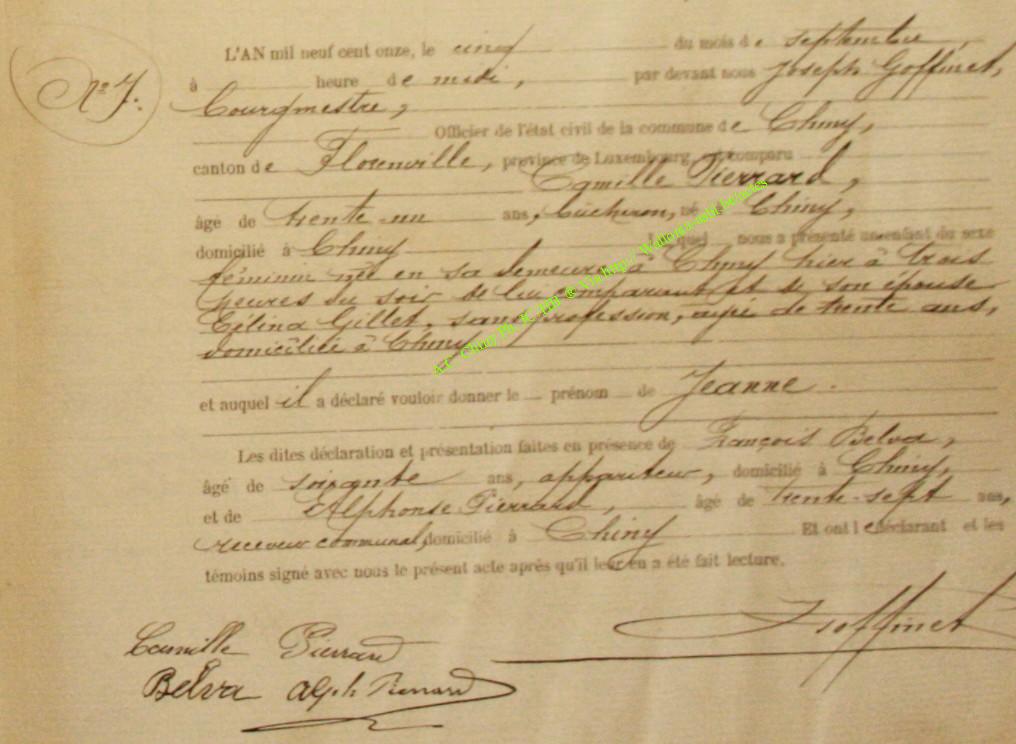 L'AN mil neuf cent onze, le cinq du mois de septembre,
No 7. à heure de midi, par devant nous Joseph Goffinet,
bourgmestre,
Officier de l'état civil de la commune de Chiny,
canton de Florenville, province de Luxembourg, est comparu
Camille Pierrard,
âgé de trente-un ans, bûcheron, né à Chiny,
domicilié à Chiny Lequel nous a présenté un enfant du sexe
féminin né en sa demeure à Chiny hier à trois
heures du soir de lui comparant et de son épouse
Célina Gillet, sans profession, agée de trente ans,
domiciliée à Chiny
et auquel il a déclaré vouloir donner le prénom de Jeanne.
Les dites déclaration et présentation faites en présence de François Belva,
âgé de soixante ans, appariteur, domicilié à Chiny,
et de Alphonse Pierrard, âgé de trente-sept ans,
receveur communal, domicilié à Chiny Et ont le déclarant et les
témoins signé avec nous le présent acte après qu'il leur en a été fait lecture.
JGoffinet
Camille Pierrard
Belva Alph Pierrard